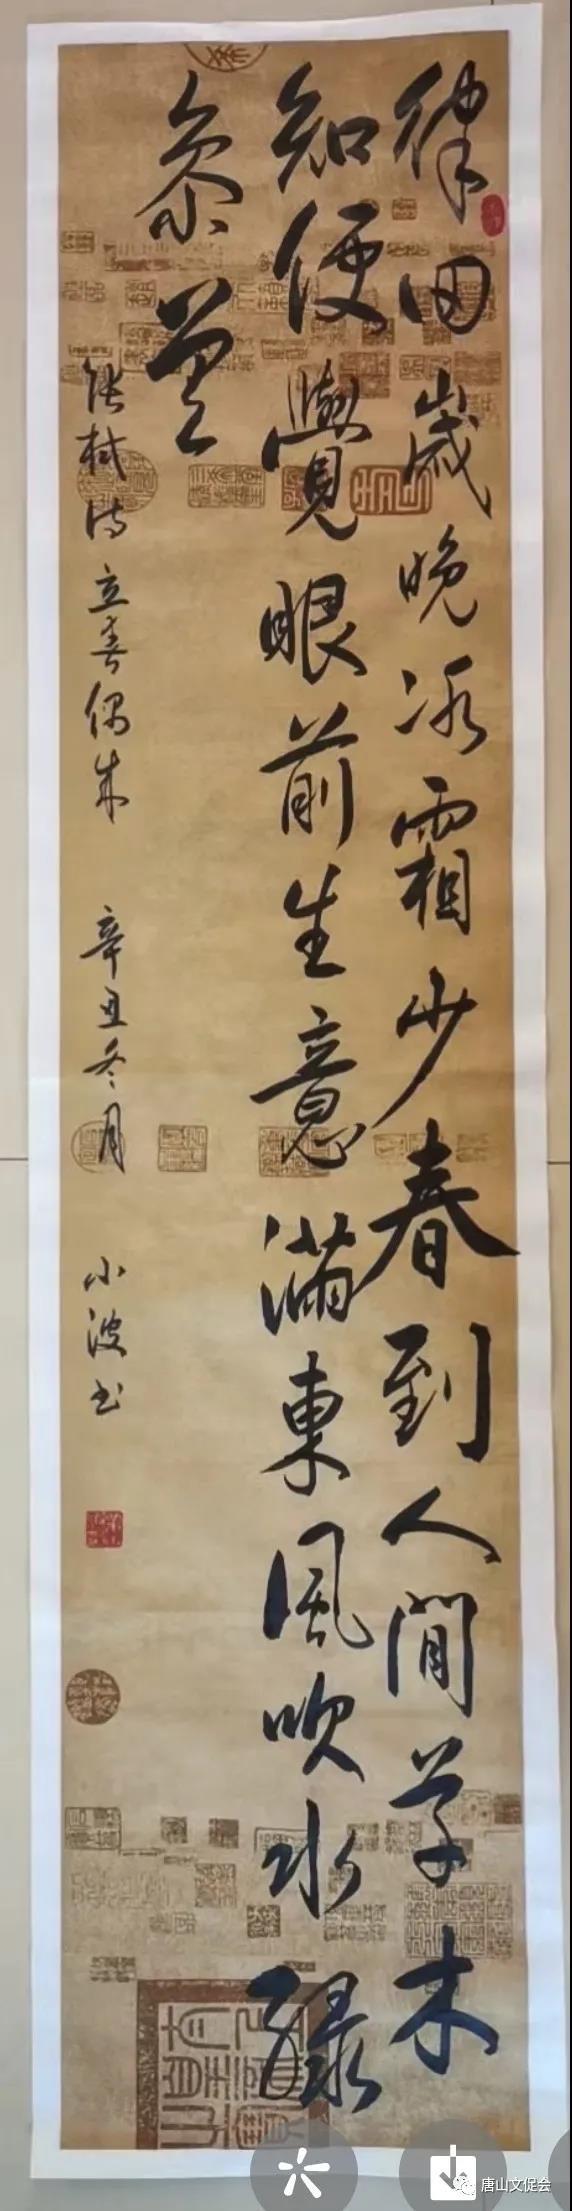 律回歲晚冰霜少春到人間草木
知便覺眼前生意滿東風吹水綠
參差
张栻诗立春偶成 辛丑冬月 小波书
唐山文促会